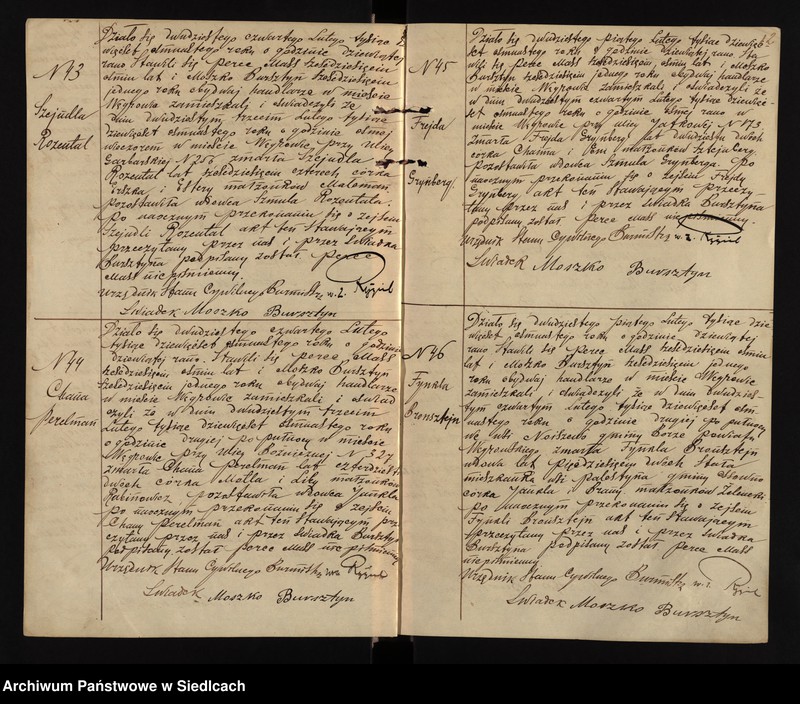 N43
Szejndla
Rozental
Działo się dwudziestego czwartego Lutego tysiąc
dziewięćset osmnastego roku o godzinie dziewiątej
rano. Stawili się Perec Mass sześćdziesięciu
ośmiu lat i Moszko Bursztyn sześćdziesięciu
jednego roku obydwaj handlarze w mieście
Węgrowie zamieszkali i oświadczyli że
dnia dwudziestym trzecim Lutego tysiąc
dziewięćset osmnastego roku o godzinie ósmej
wieczorem w mieście Węgrowie przy ulicy
Garbarskiej N256 zmarła Szejndla
Rozental lat sześćdziesięciu czterech córka
Icka i Estery małżonków
pozostawiła wdowca Szmula Rozentala.
Po naocznym przekonaniu się o zejściu
Szejndli Rozental akt ten stawającym
przeczytany przez nas i przez świadka
Bursztyna podpisany został Perec
Mass niepiśmienny.
Urzędnik Stanu Cywilnego Burmistrz w. z.
Świadek Moszko Bursztyn
N44
Chana
Perelman
Działo się dwudziestego czwartego Lutego
tysiąc dziewięćset osmnastego roku o godzinie
dziewiątej rano. Stawili się Perec Mass
sześćdziesięciu ośmiu lat i Moszko Bursztyn
sześćdziesięciu jednego roku obydwaj handlarze
w mieście Węgrowie zamieszkali i oświad
czyli że w dniu dwudziestym trzecim
Lutego tysiąc dziewięćset osmnastego roku
o godzinie drugiej po południu w mieście
Węgrowie przy ulicy Bożnicznej N 327
zmarła Chana Perelman lat czterdzieści
dwóch córka Motla i małżonków
Rabinowicz, pozostawiła wdowca Jankla
Po naocznym przekonaniu się o zejściu
Chany Perelman akt ten stawającym prze
czytany przez nas i przez świadka Bursztyna
podpisany został Perec Mass niepiśmienny
Urzędnik Stanu Cywilnego Burmistrz
Świadek Moszko Bursztyn
N45
Frejda
Grynberg.
Działo się dwudziestego piątego Lutego tysiąc dziewięć
set osmnastego roku o godzinie dziewiątej rano. Sta
wili się Perec Mass sześćdziesięciu ośmiu lat i Moszko
Bursztyn sześćdziesięciu jednego roku obydwaj handlarze
w mieście Węgrowie zamieszkali i oświadczyli że
w dniu dwudziestym czwartym Lutego tysiąc dziewięć
set osmnastego roku o godzinie ósmej rano w
mieście Węgrowie przy ulicy Jatkowej N173
zmarła Frejda Grynberg lat dwudziestu dwóch
córka Chaima i małżonków
Pozostawiła wdowca Szmula Grynberga. Po
naocznym przekonaniu się o zejściu Frejdy
Grynberg, akt ten stawającym przeczy
tany przez nas i przez świadka Bursztyna
podpisany został Perec Mass niepiśmienny.
Urzędnik Stanu Cywilnego Burmistrz w. z.
Świadek Moszko Bursztyn
N46
Fynkla
Bronsztejn
Działo się dwudziestego piątego Lutego tysiąc dzie
więćset osmnastego roku o godzinie dziewiątej
rano Stawili się Perec Mass sześćdziesięciu ośmiu
lat i Moszko Bursztyn sześćdziesięciu jednego
roku obydwaj handlarze w mieście Węgrowie
zamieszkali i oświadczyli że w dniu dwudzies
tym czwartym Lutego tysiąc dziewięćset osm
nastego roku o godzinie drugiej po południu
we wsi gminy Borze powiatu
Węgrowskiego zmarła Fynkla Bronsztejn
wdowa lat pięćdziesięciu dwóch stała
mieszkanka wsi gminy
córka Jankla i małżonków
Po naocznym przekonaniu się o zejściu
Fynkli Bronsztejn akt ten stawającym
przeczytany przez nas i przez świadka
Bursztyna podpisany został Perec Mass
niepiśmienny.
Urzędnik Stanu Cywilnego Burmistrz w. z.
Świadek Moszko Bursztyn
Archiwum Państwowe w Siedlcach